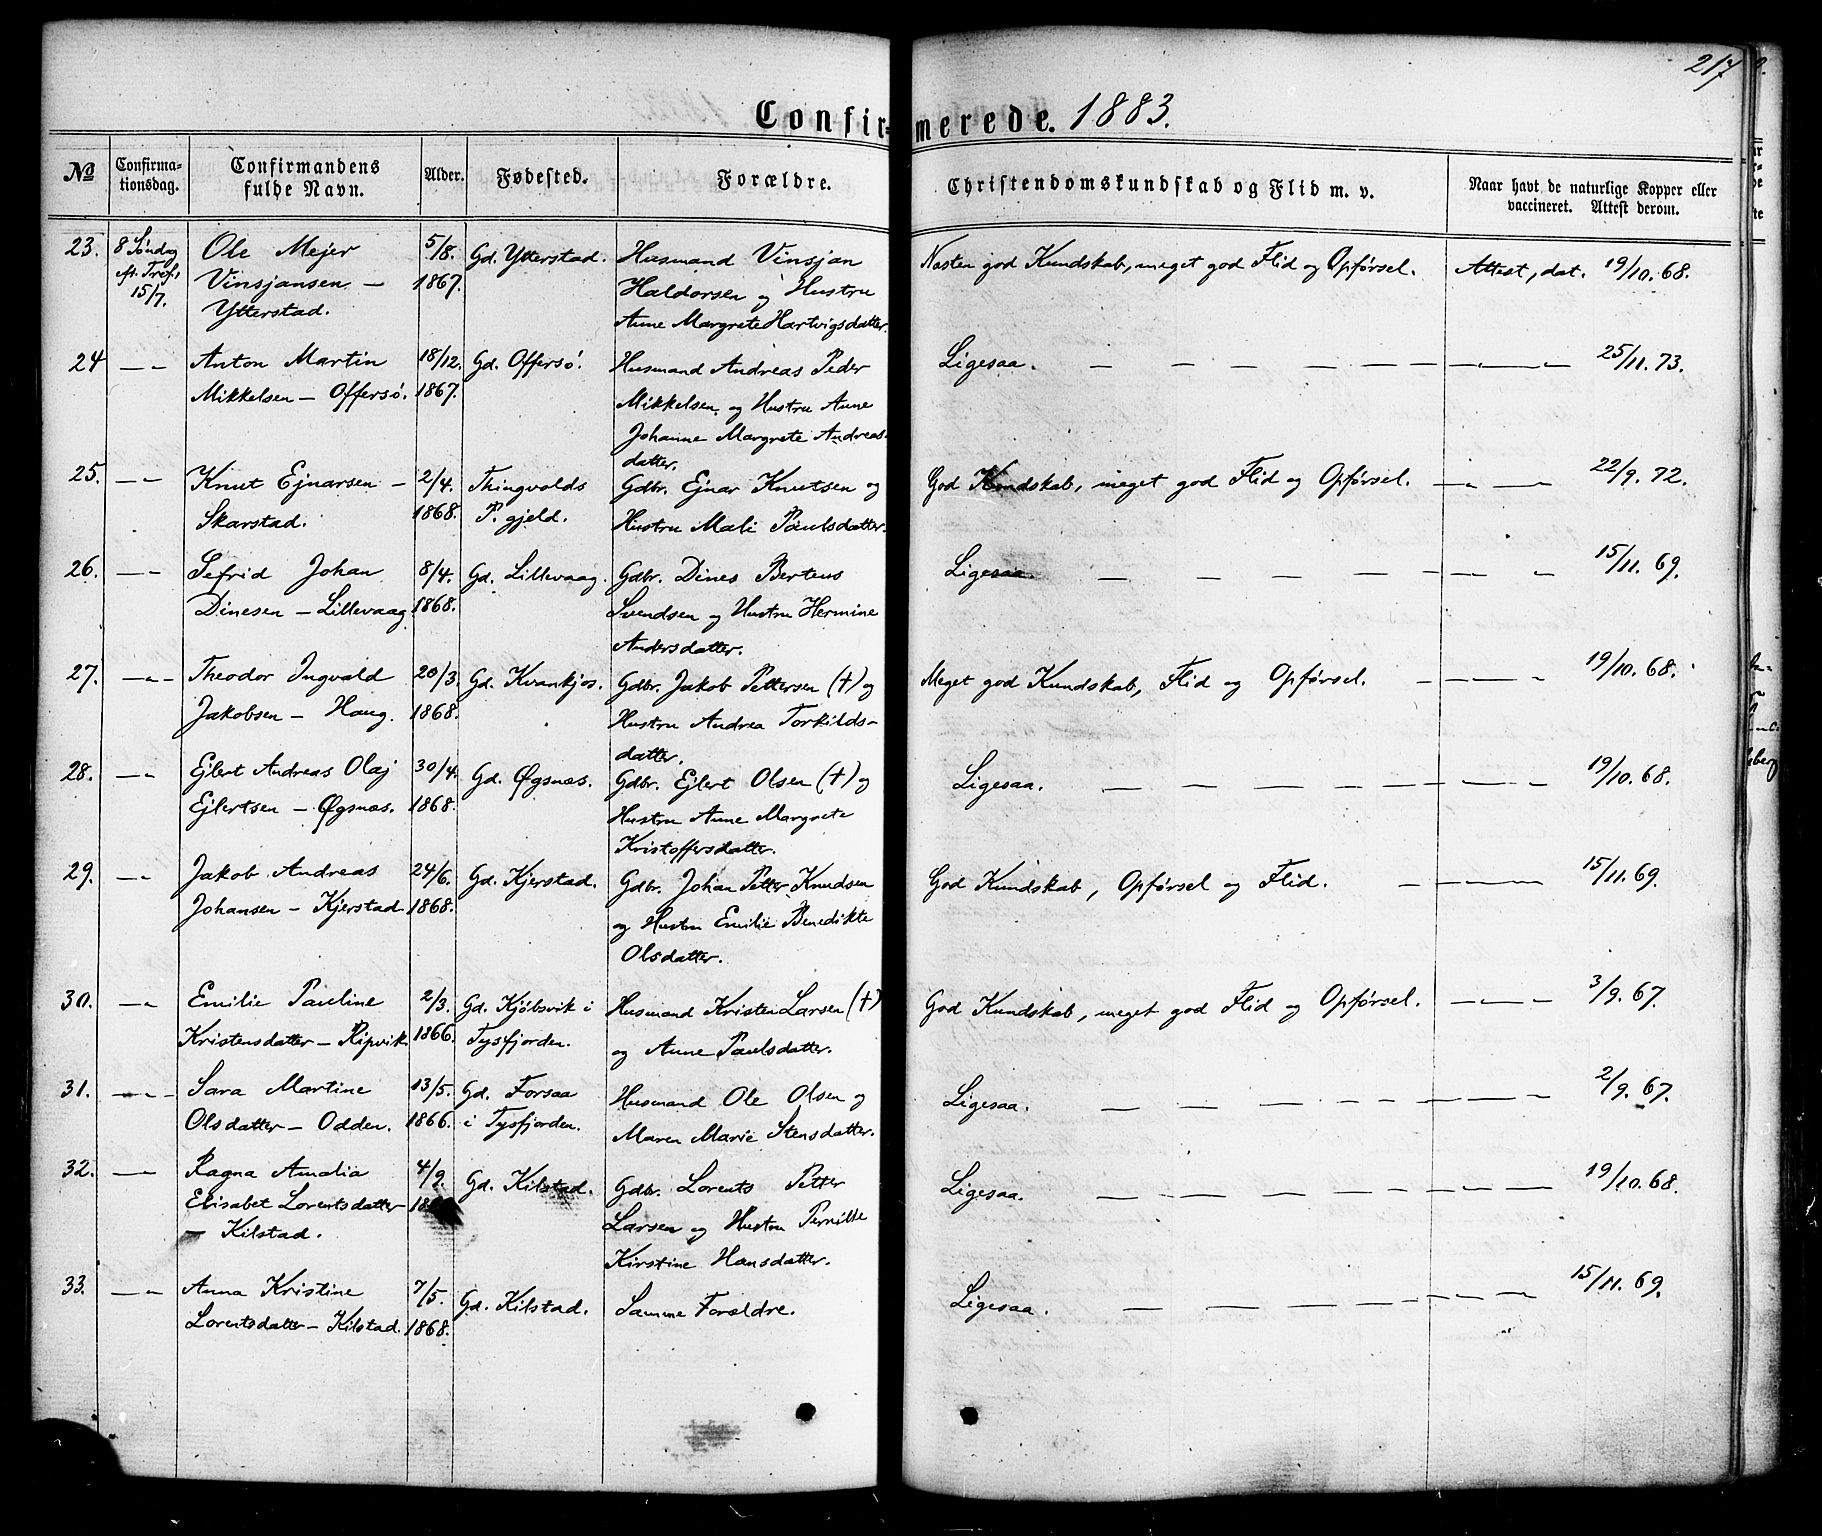 217
Confirmerede. 1883.
No Confirmationsdag. Confirmandens fulde Navn. Alder. Fødested. Forældre. Christendomskundskab og Flid m. v. Naar havt de naturlige Kopper eller vaccineret. Attest derom.
23. 8 Søndag Ole Mejer 5/8. Gd. Ytterstad. Husmand Vinsjan Næsten god Kundskab, meget god Flid og Opførsel. Attest, dat. 19/10. 68.
eft. Tref. Vinsjansen – 1867. Haldorsen og Hustru
15/7. Ytterstad. Anne Margrete Hartvigsdatter.
24 — „ Anton Martin 18/12. Gd. Offersø. Husmand Andreas Peder Ligesaa. — — — — — — — „ — 25/11. 73.
Mikkelsen – Offersø. 1867. Mikkelsen og Hustru Anne
Johanne Margrete Andreas-
datter.
25. — „ Knut Ejnarsen – 2/4. Thingvolds Gdbr. Ejnar Knutsen og God Kundskab, meget god Flid og Opførsel. — „ — „ 22/9. 72.
Skarstad. 1868. P. gjeld. Hustru Mali Paulsdatter.
26. — „ Sefrid Johan 8/4. Gd. Lillevaag. Gdbr. Dines Berteus Ligesaa. — — — — — — „ — „ 15/11. 69.
Dinesen – Lillevaag 1868. Svendsen og Hustru Hermine
Andersdatter.
27. — „ Theodor Ingvald 20/3. Gd. Kvankjos. Gdbr. Jakob Pettersen (†) og Meget god Kundskab, Flid og Opførsel. — — „ — „ 19/10. 68.
Jakobsen – Haug. 1868. Hustru Andrea Torkilds-
datter.
28. — „ Ejlert Andreas Olaj 30/4. Gd. Øgsnæs. Gdbr. Ejlert Olsen (†) og Ligesaa. — — — — — — „ — „ 19/10. 68.
Ejlertsen – Øgsnæs. 1868. Hustru Anne Margrete
Kristoffersdatter.
29. — „ Jakob Andreas 24/6. Gd. Kjerstad. Gdbr. Johan Petter Knudsen God Kundskab, Opførsel og Flid. — — „ — „ 15/11. 69.
Johansen – Kjerstad 1868. og Hustru Emilie Benedikte
Olsdatter.
30. — „ Emilie Pauline 2/3. Gd. Kjøbsvik i Husmand Kristen Larsen (†) God Kundskab, meget god Flid og Opførsel. — „ — „ 3/9. 67.
Kristensdatter – Ripvik 1866. Tysfjorden. og Anne Paulsdatter.
31. — „ Sara Martine 13/5. Gd. Forsaa Husmand Ole Olsen og Ligesaa. — — — — — — — „ — 2/9. 67.
Olsdatter – Odden. 1866. i Tysfjorden. Maren Marie Stensdatter.
32. — „ Ragna Amalia 4/9. Gd. Kilstad. Gdbr. Lorents Petter Ligesaa. — — — — — — — „ — 19/10. 68.
Elisabet Lorentsdatter Larsen og Hustru Pernille
– Kilstad. Kirstine Hansdatter.
33. — „ Anna Kristine 7/5. Gd. Kilstad. Samme Forældre. Ligesaa. — — — — — — „ — „ 15/11. 69.
Lorentsdatter – Kilstad. 1868.